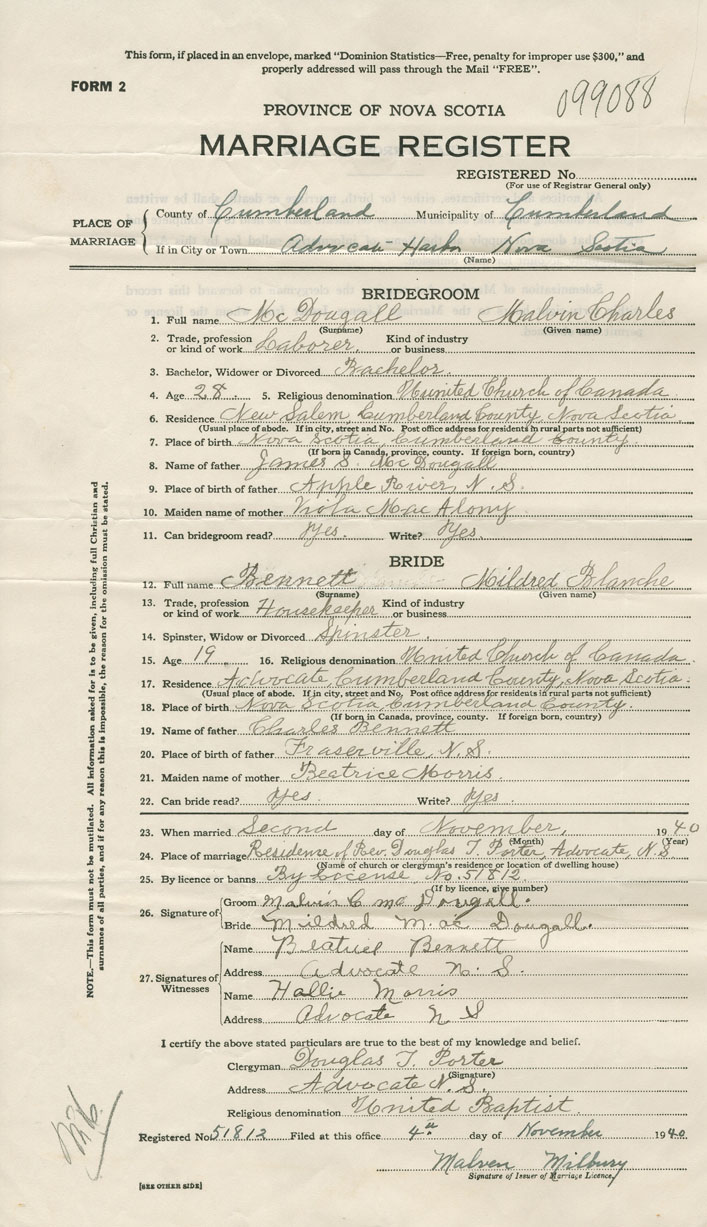 This form, if placed in an envelope, marked "Dominion Statistics—Free, penalty for improper use $300," and
properly addressed will pass through the Mail "FREE".
FORM 2
099088
PROVINCE OF NOVA SCOTIA
MARRIAGE REGISTER
REGISTERED No.
(For use of Registrar General only)
PLACE OF MARRIAGE
County of Cumberland Municipality of Cumberland
If in City or Town Advocate Harbor Nova Scotia
(Name)
BRIDEGROOM
1. Full name McDougall Malvin Charles
(Surname) (Given name)
2. Trade, profession or kind of work Laborer. Kind of industry or business
3. Bachelor, Widower or Divorced Bachelor.
4. Age 28. 5. Religious denomination United Church of Canada
6. Residence New Salem, Cumberland County, Nova Scotia.
(Usual place of abode. If in city, street and No. Post office address for residents in rural parts not sufficient)
7. Place of birth Nova Scotia, Cumberland County.
(If born in Canada, province, county. If foreign born, country)
8. Name of father James S. McDougall
9. Place of birth of father Apple River, N.S.
10. Maiden name of mother Viola Mac Alony
11. Can bridegroom read? Yes. Write? Yes.
BRIDE
12. Full name Bennett Mildred Blanche
(Surname) (Given name)
13. Trade, profession or kind of work Housekeeper Kind of industry or business
14. Spinster, Widow or Divorced Spinster.
15. Age 19 16. Religious denomination United Church of Canada.
17. Residence Advocate, Cumberland County, Nova Scotia.
(Usual place of abode. If in city, street and No. Post office address for residents in rural parts not sufficient)
18. Place of birth Nova Scotia, Cumberland County.
(If born in Canada, province, county. If foreign born, country)
19. Name of father Charles Bennett
20. Place of birth of father Fraserville, N.S.
21. Maiden name of mother Beatrice Morris.
22. Can bride read? Yes. Write? Yes.
23. When married Second day of November, 1940
(Month) (Year)
24. Place of marriage Residence of Rev. Douglas T. Porter, Advocate, N.S.
(Name of church or clergyman's residence or location of dwelling house)
25. By licence or banns By License, No. 51812
(If by licence, give number)
26. Signature of
Groom Malvin C mc Dougall.
Bride Mildred Mac Dougall.
27. Signatures of Witnesses
Name Bennett
Address Advocate N. S.
Name Hallie Morris
Address Advocate N S
I certify the above stated particulars are true to the best of my knowledge and belief.
Clergyman Douglas T. Porter
(Signature)
Address Advocate N.S.
Religious denomination United Baptist.
Registered No. 51812 Filed at this office 4th day of November 1940
Malven Milbury
Signature of Issuer of Marriage Licence.
[SEE OTHER SIDE]
NOTE.—This form must not be mutilated. All information asked for is to be given, including full Christian and
surnames of all parties, and if for any reason this is impossible, the reason for the omission must be stated.